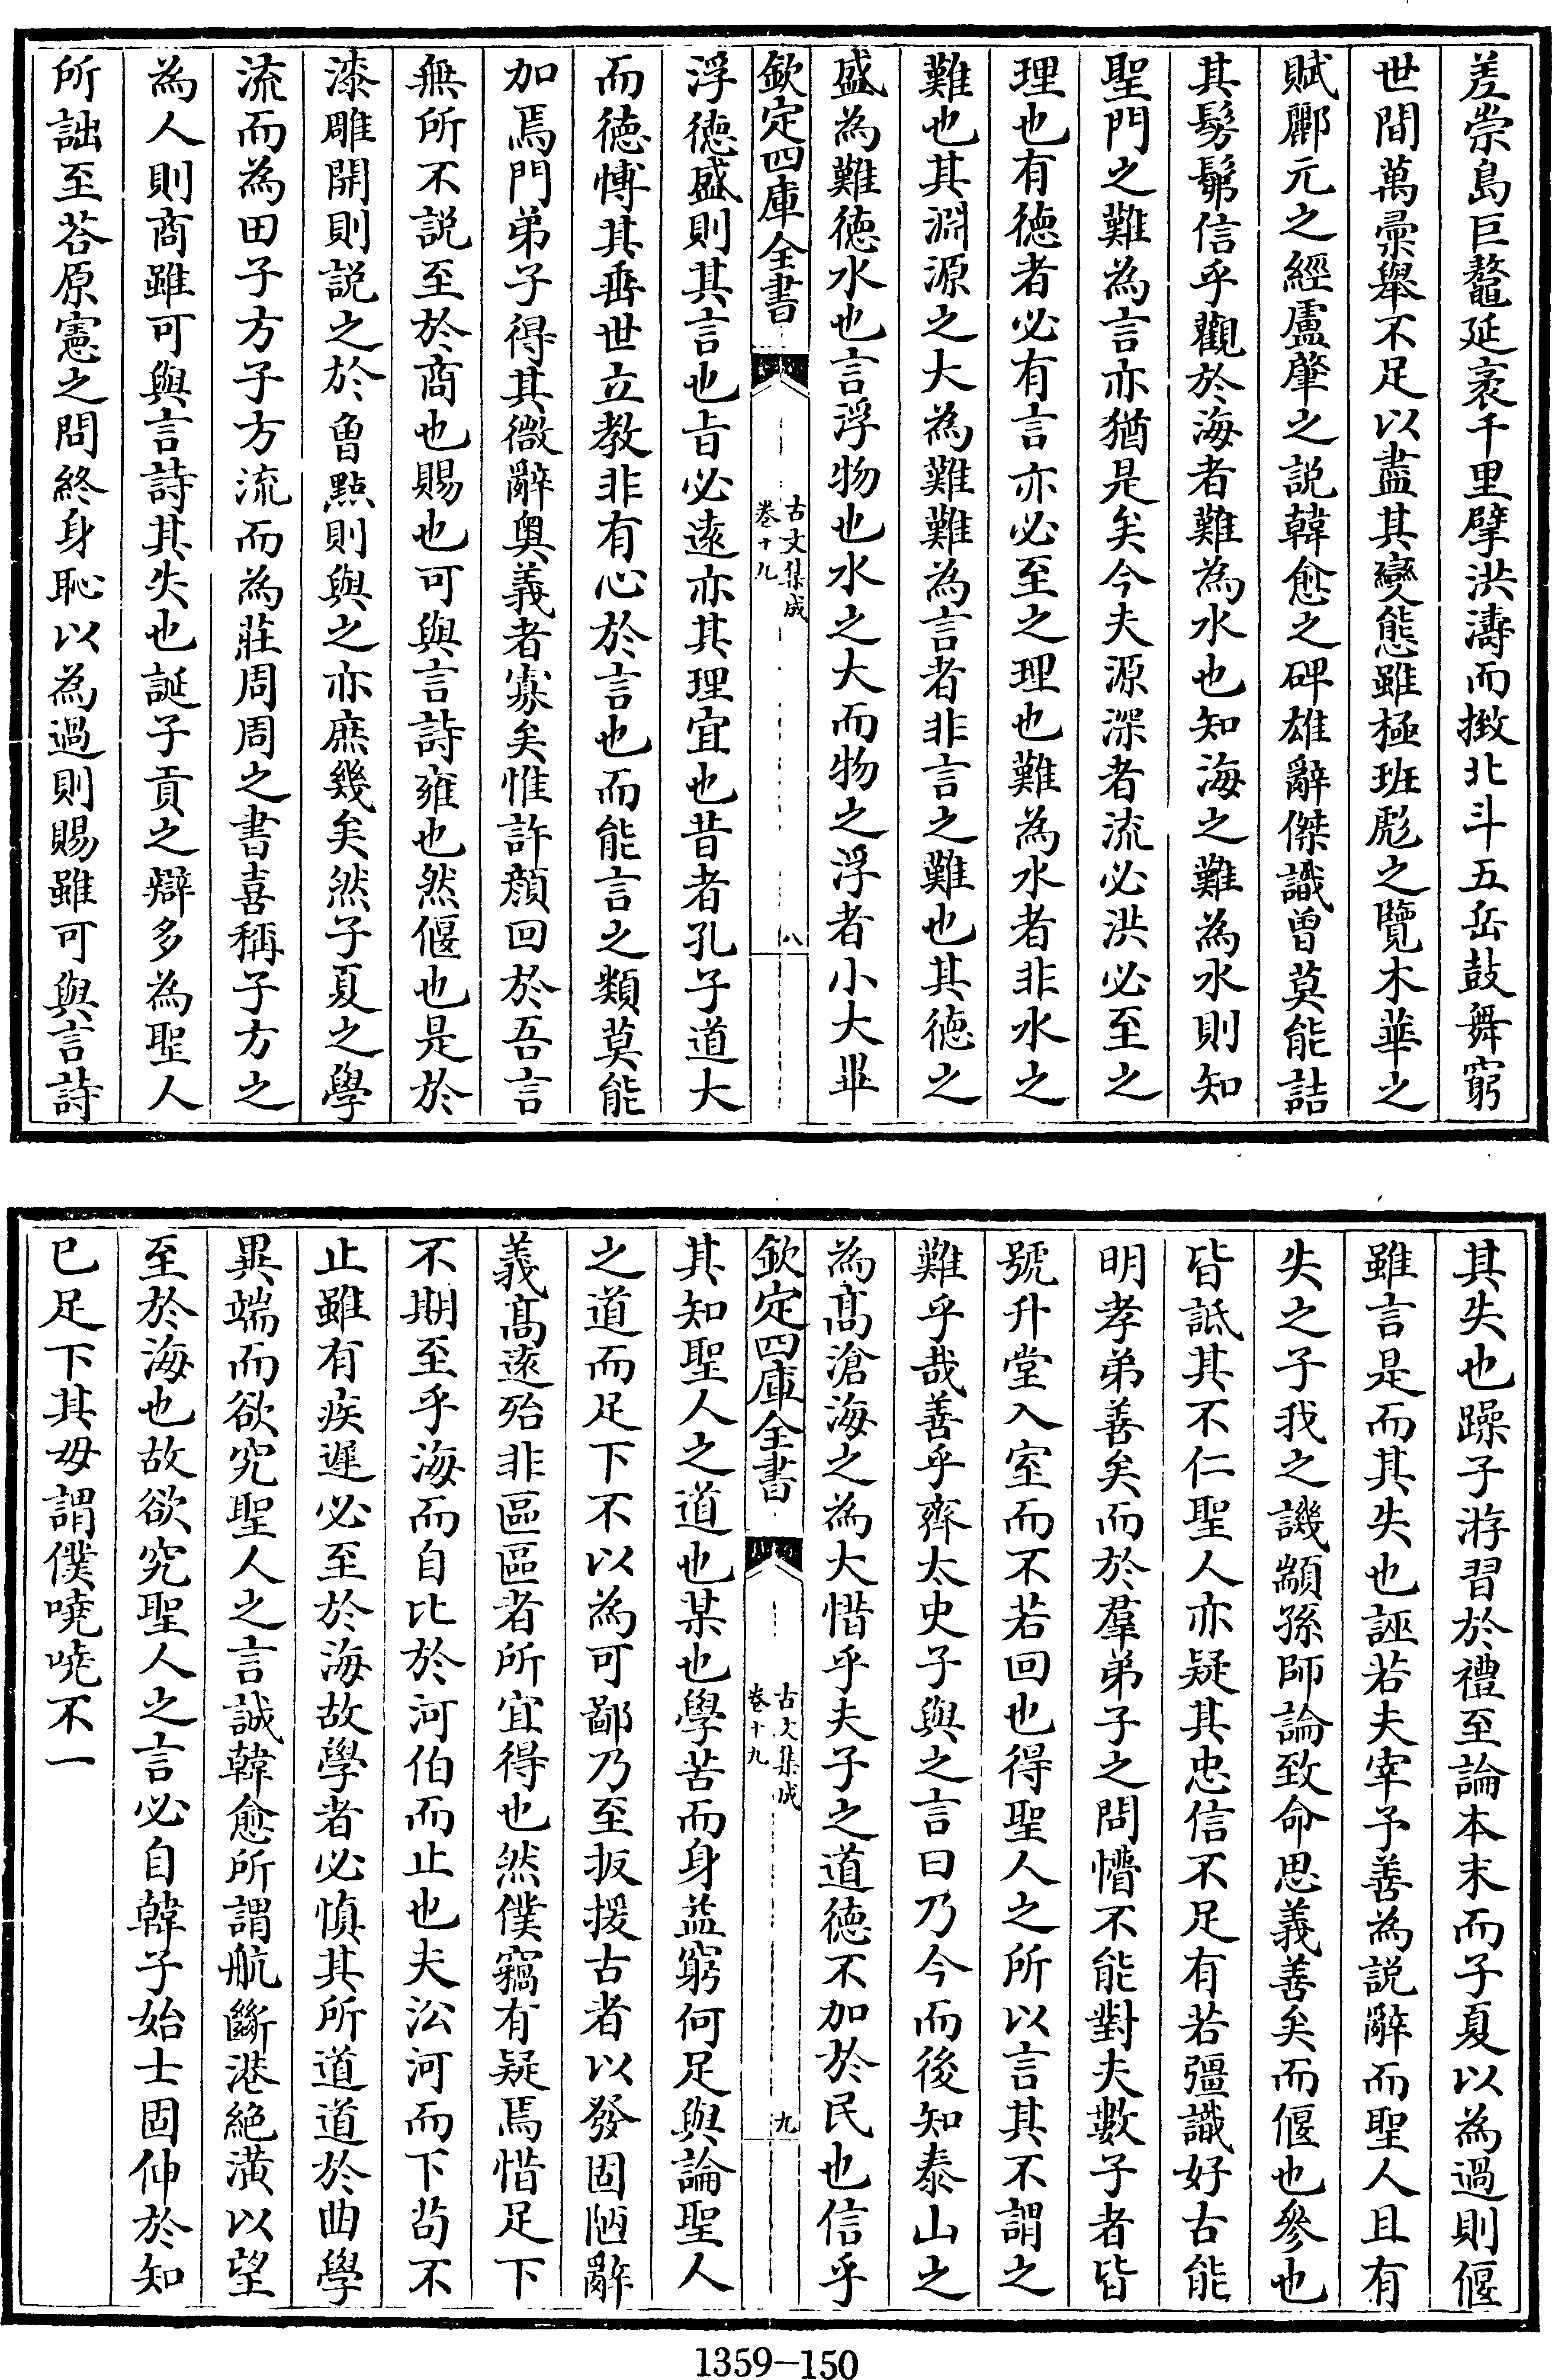 差崇島巨鼇延袤千里擘洪濤而撴北斗五岳鼓舞窮
世間萬彚舉不足以盡其變態雖極班彪之覽木華之
賦酈元之經盧肇之説韓愈之碑雄辭傑識曾莫能詰
其髣髴信乎觀於海者難為水也知海之難為水則知
聖門之難為言亦猶是矣今夫源深者流必洪必至之
理也有徳者必有言亦必至之理也難為水者非水之
難也其淵源之大為難難為言者非言之難也其徳之
盛為難徳水也言浮物也水之大而物之浮者小大畢
欽定四庫全書
古文集成
卷十九
八
浮徳盛則其言也㫖必遠亦其理宜也昔者孔子道大
而徳博其垂世立教非有心於言也而能言之類莫能
加焉門弟子得其微辭奥義者寡矣惟許顔回於吾言
無所不説至於商也賜也可與言詩雍也然偃也是於
漆雕開則説之於曾點則與之亦庶幾矣然子夏之學
流而為田子方子方流而為莊周周之書喜稱子方之
為人則商雖可與言詩其失也誕子貢之辯多為聖人
所詘至荅原憲之問終身恥以為過則賜雖可與言詩
其失也躁子游習於禮至論本末而子夏以為過則偃
雖言是而其失也誣若夫宰予善為説辭而聖人且有
失之子我之譏顓孫師論致命思義善矣而偃也參也
皆詆其不仁聖人亦疑其忠信不足有若彊識好古能
明孝弟善矣而於羣弟子之問懵不能對夫數子者皆
號升堂入室而不若回也得聖人之所以言其不謂之
難乎哉善乎齊太史子與之言曰乃今而後知泰山之
為髙滄海之為大惜乎夫子之道徳不加於民也信乎
欽定四庫全書
古文集成
卷十九
九
其知聖人之道也某也學苦而身益窮何足與論聖人
之道而足下不以為可鄙乃至扳援古者以發固陋辭
義髙遠殆非區區者所宜得也然僕竊有疑焉惜足下
不期至乎海而自比於河伯而止也夫㳂河而下苟不
止雖有疾遲必至於海故學者必慎其所道道於曲學
異端而欲究聖人之言誠韓愈所謂航斷港絶潢以望
至於海也故欲究聖人之言必自韓子始士固伸於知
已足下其毋謂僕嘵嘵不一
1359-150